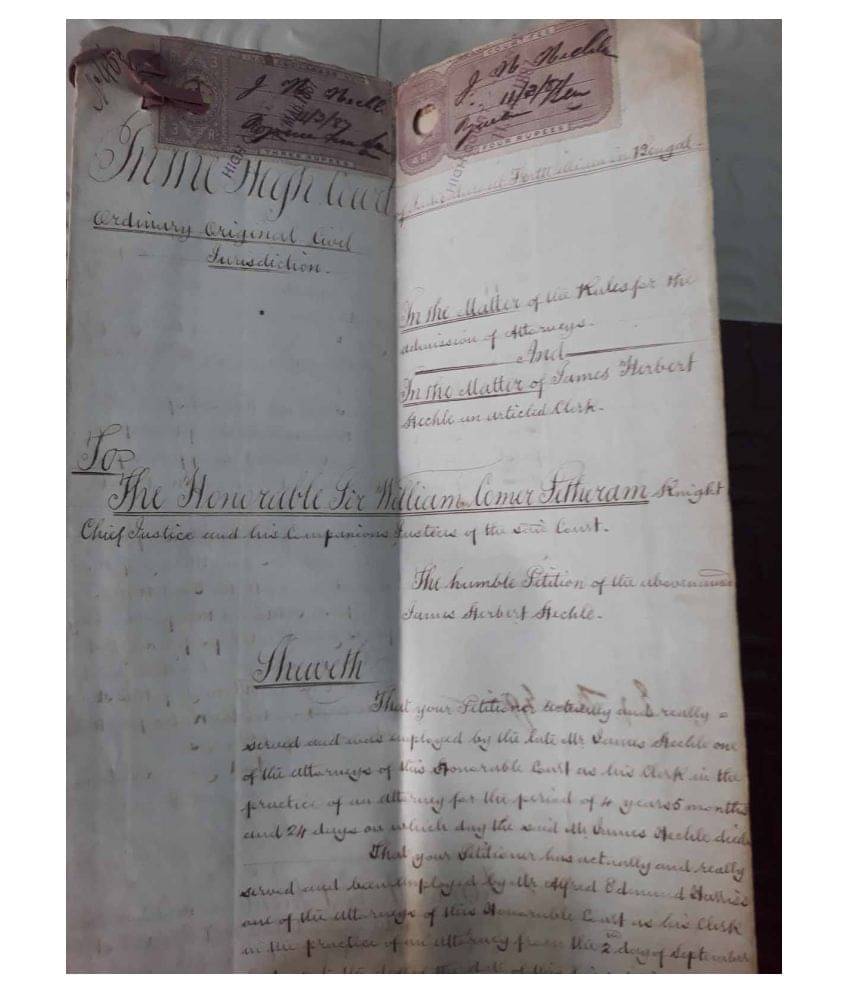 THREE RUPEES
COURT FEE
FOUR RUPEES
In the High Court of Judicature at Fort William in Bengal.
Ordinary Original Civil
Jurisdiction.
In the Matter of the Rules for the
admission of Attorneys.
And
In the Matter of James Herbert
Hechle an articled Clerk.
To
The Honorable Sir William Comer Petheram Knight
Chief Justice and his Companions Justices of the said Court.
The humble Petition of the abovenamed
James Herbert Hechle.
Sheweth
That your Petitioner actually and really
served and was employed by the late Mr James Hechle one
of the attorneys of this Honorable Court as his Clerk in the
practice of an attorney for the period of 4 years 5 months
and 24 days on which day the said Mr James Hechle died
That your Petitioner has actually and really
served and been employed by Mr Alfred Edmund Harriss
one of the attorneys of this Honorable Court as his Clerk
in the practice of an attorney from the 2nd day of September